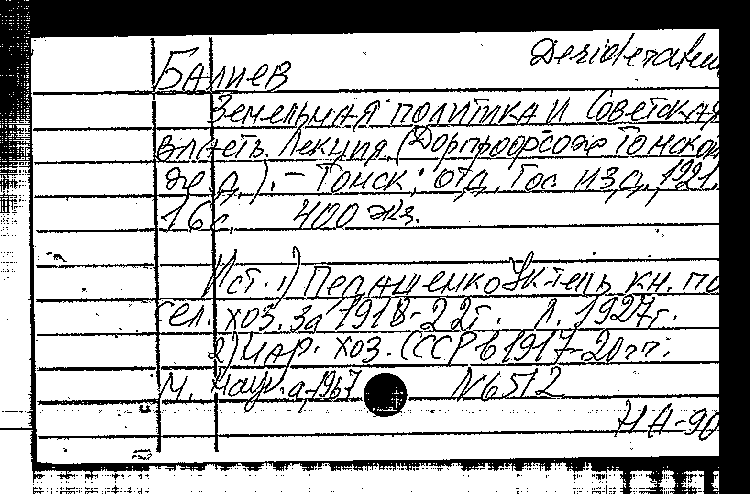 Desiderata
Балиев
Земельная политика и Советская
власть. Лекция. (Дорпрофсож Томской
ж.д.). – Томск: отд. Гос. изд., 1921.
16 с. 400 экз.
Ист. 1) Указатель кн. по
сел. хоз. за 1918-22 г. Л. 1927 г.
2) Нар. хоз. СССР в 1917-20 гг.
М. Наука, 1967 N 6512
НА-90